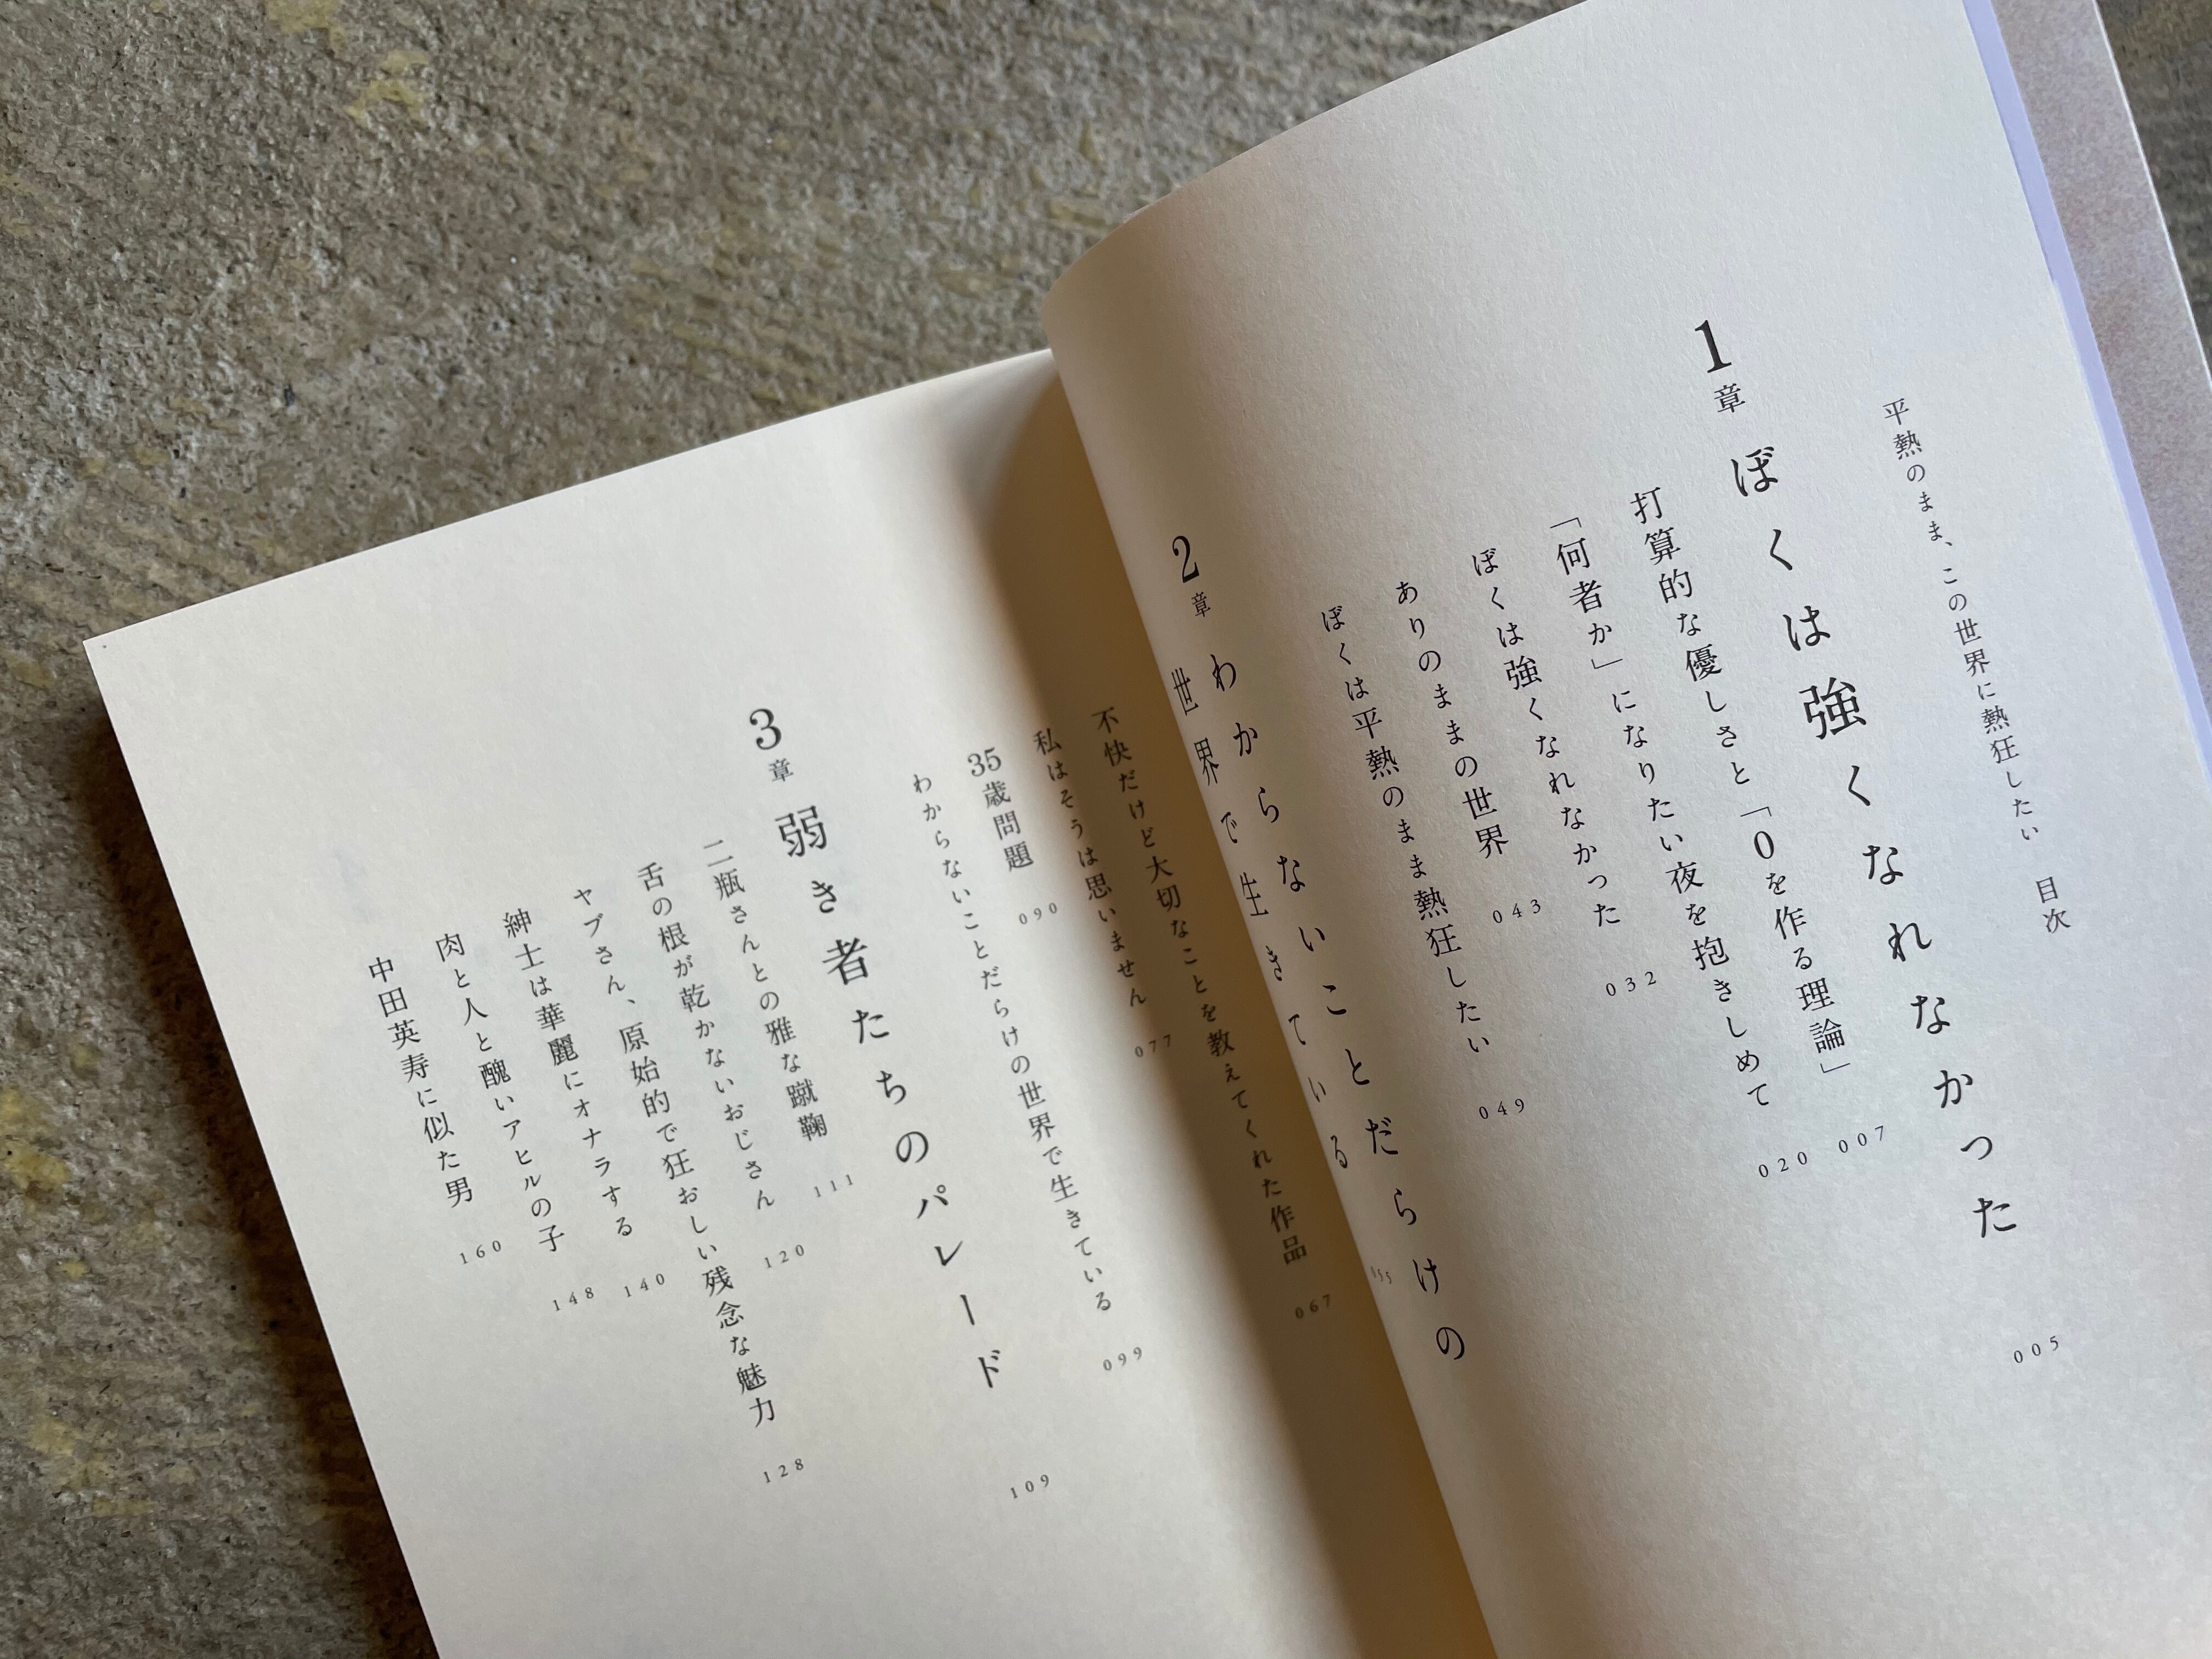 平熱のまま、この世界に熱狂したい 目次
1章 ぼくは強くなれなかった 005
打算的な優しさと「0を作る理論」 007
「何者か」になりたい夜を抱きしめて 020
ぼくは強くなれなかった 032
ありのままの世界 043
ぼくは平熱のまま熱狂したい 049
2章 わからないことだらけの
世界で生きている 055
不快だけど大切なことを教えてくれた作品 067
私はそうは思いません 077
35歳問題 090
わからないことだらけの世界で生きている 099
3章 弱き者たちのパレード 109
二瓶さんとの雅な蹴鞠 111
舌の根が乾かないおじさん 120
ヤブさん、原始的で狂おしい残念な魅力 128
紳士は華麗にオナラする 140
肉と人と醜いアヒルの子 148
中田英寿に似た男 160